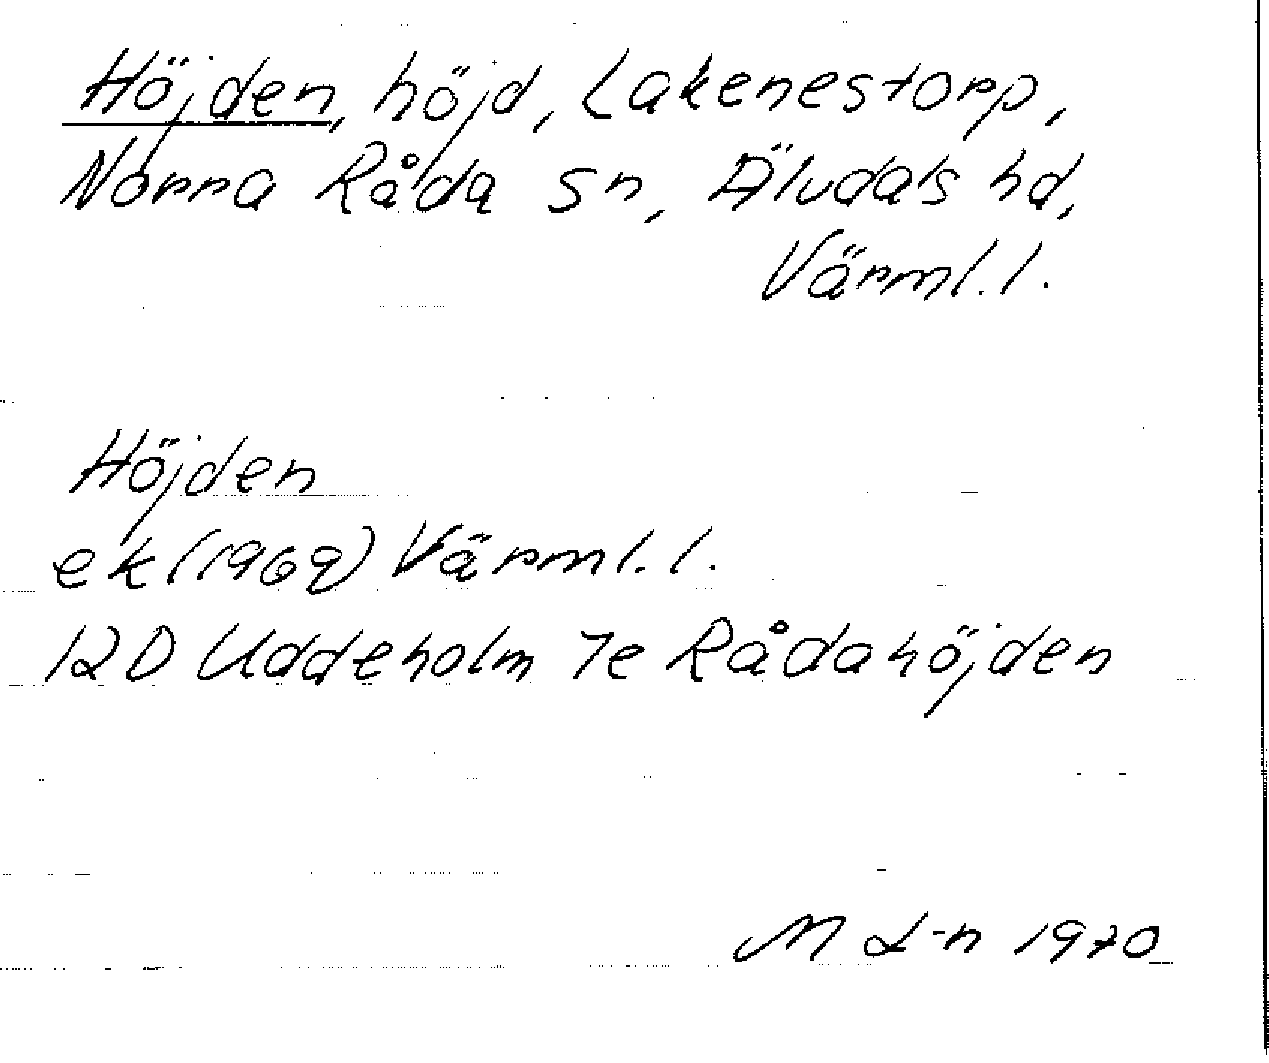 Höjden, höjd, Lakenestorp,
Norra Råda sn, Älvdals hd,
Värml. l.
Höjden
ek (1969) Värml. l.
12D Uddeholm 7e Rådahöjden
M L-n 1970